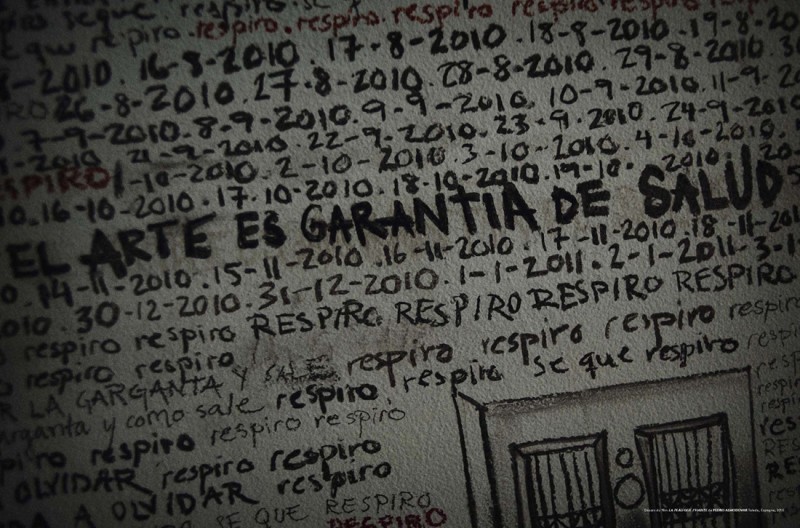 que respiro se
respiro.respiro.respiro respiro respiro
-2010. 16-8-2010. 17-8-2010. 18-8-2010. 19-8-20
26-8-2010. 27-8-2010. 28-8-2010. 29-8-2010. 30
7-9-2010. 8-9-2010. 9-9-2010. 10-9-2010. 11-9-
21-9-2010. 22-9-2010. 23-9-2010. 24-9-2010
SPIRO 1-10-2010. 2-10-2010. 3-10-2010. 4-10-2010.
0.16-10-2010. 17.10-2010. 18-10-2010. 19-10- 2010. 20-
EL ARTE ES GARANTIA DE SALUD
0. 14-11-2010. 15-11-2010. 16-11-2010. 17-11-2010. 18-11-201
010. 30-12-2010. 31-12-2010. 1-1-2011. 2-1-2011. 3-1
respiro respiro RESPIRO RESPIRO RESPIRO RESPIRO RESPIRO
respiro respiro respiro respiro respiro respiro
R LA GARGANTA Y SALE respiro se que respiro
arganta y como sale respiro respiro
piro respiro respiro respiro
OLVIDAR respiro respiro
A OLVIDAR respiro
SE QUE RESPIRO
RESPIRO